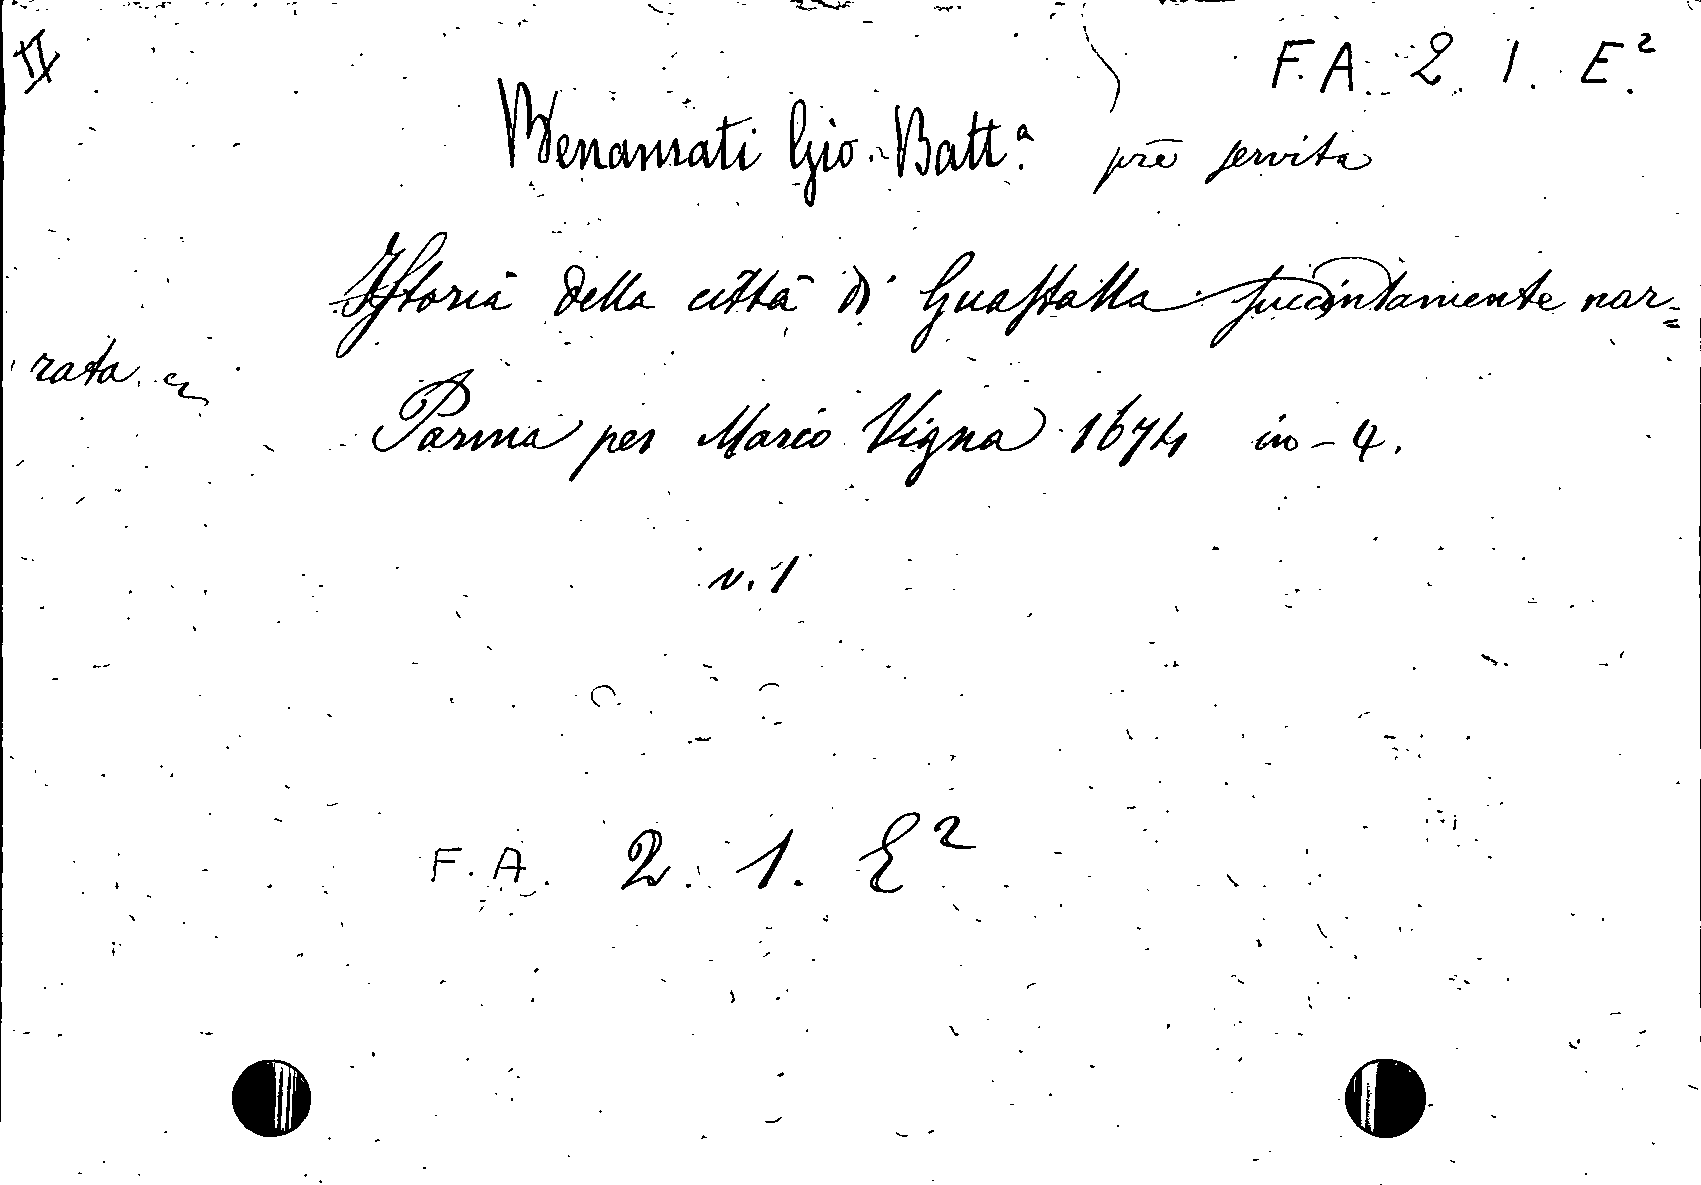 II
F. A. 2. 1. E².
Benamati Gio. Batt.ª prē servita
Istoria della città di Guastalla succintamente nar=
rata
Parma per Mario Vigna 1674 in-4.
v. 1
F. A. 2. 1. E²